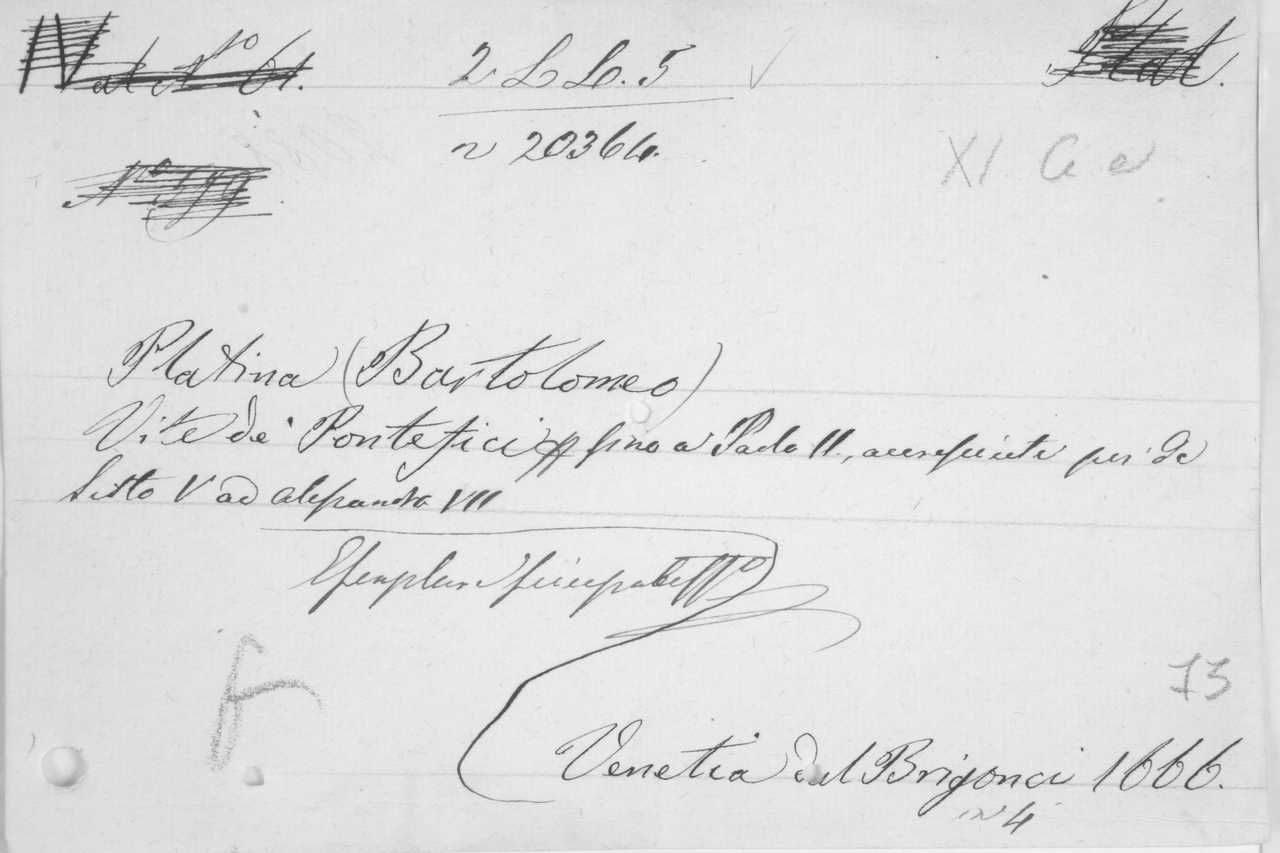 N° 61.
2 L L. 5
n 20364.
XI
Platina (Bartolomeo)
Vite de' Pontefici fino a Paolo II., accresciute per da
Sisto V ad Alessandro VII
Esemplare
73
Venetia dal Brigonci 1666.
in 4